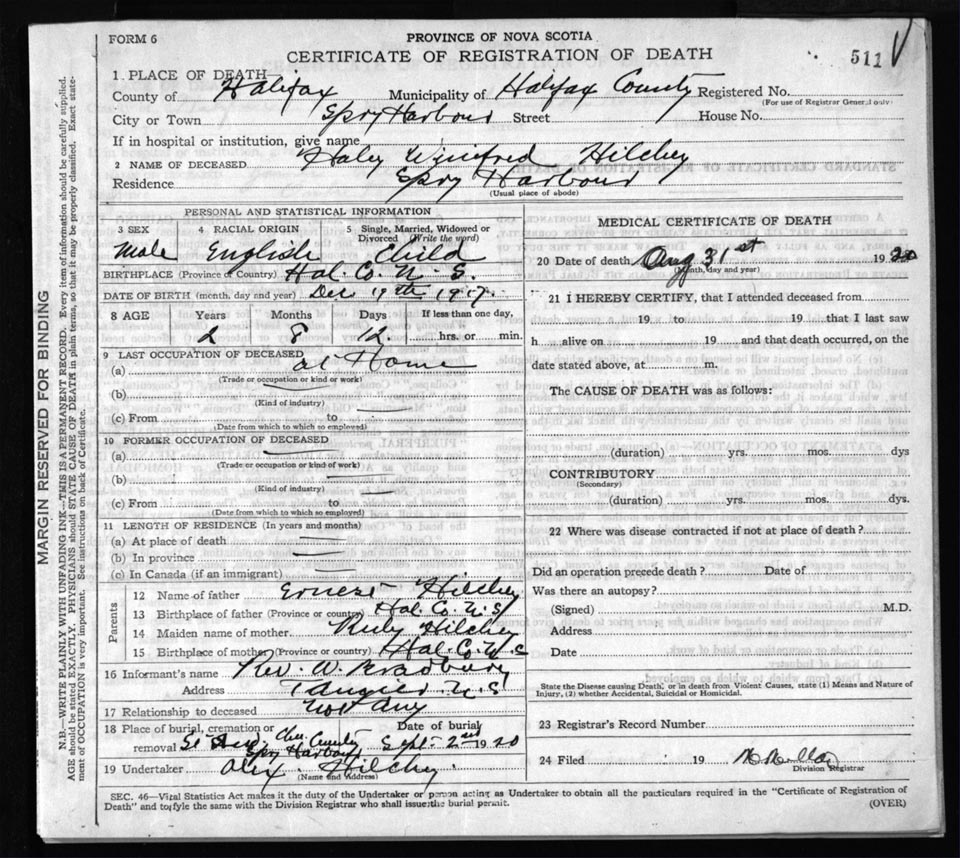 FORM 6
PROVINCE OF NOVA SCOTIA
CERTIFICATE OF REGISTRATION OF DEATH
511
1 PLACE OF DEATH
County of Halifax Municipality of Halifax County Registered No.
(For use of Registrar General only)
City or Town Spry Harbour Street House No.
If in hospital or institution, give name
2 NAME OF DECEASED Haley Winifred Hilchey
Residence Spry Harbour
(Usual place of abode)
PERSONAL AND STATISTICAL INFORMATION
3 SEX 4 RACIAL ORIGIN 5 Single, Married, Widowed or Divorced (Write the word)
Male English Child
BIRTHPLACE (Province or Country) Hal. Co. N. S.
DATE OF BIRTH (month, day and year) Dec 19th 1917.
8 AGE Years Months Days If less than one day,
2 8 12 hrs. or min.
9 LAST OCCUPATION OF DECEASED
(a) at Home
(Trade or occupation or kind or work)
(b)
(Kind of industry)
(c) From to
(Date from which to which so employed)
10 FORMER OCCUPATION OF DECEASED
(a)
(Trade or occupation or kind of work)
(b)
(Kind of industry)
(c) From to
(Date from which to which so employed)
11 LENGTH OF RESIDENCE (In years and months)
(a) At place of death
(b) In province
(c) In Canada (if an immigrant)
Parents
12 Name of father Ernest Hilchey
13 Birthplace of father (Province or country) Hal. Co. N. S.
14 Maiden name of mother Ruby Hilchey
15 Birthplace of mother (Province or country) Hal. Co. N. S
16 Informant's name Rev. A. Bradbury
Address Tangier N. S
17 Relationship to deceased Not any
18 Place of burial, cremation or removal Spry Harbour Date of burial Sept 2nd 1920
19 Undertaker Alex. Hilchy.
(Name and Address)
MEDICAL CERTIFICATE OF DEATH
20 Date of death Aug 31st 1920
(Month, day and year)
21 I HEREBY CERTIFY, that I attended deceased from
19 to 19 that I last saw
h alive on 19 and that death occurred, on the
date stated above, at m.
The CAUSE OF DEATH was as follows:
(duration) yrs. mos. dys
CONTRIBUTORY
(Secondary)
(duration) yrs. mos. dys.
22 Where was disease contracted if not at place of death?
Did an operation precede death? Date of
Was there an autopsy?
(Signed) M.D.
Address
Date
State the Disease causing Death, or in death from Violent Causes, state (1) Means and Nature of
Injury, (2) whether Accidental, Suicidal or Homicidal.
23 Registrar's Record Number
24 Filed 19
Division Registrar
SEC. 46—Vital Statistics Act makes it the duty of the Undertaker or person acting as Undertaker to obtain all the particulars required in the "Certificate of Registration of
Death" and to file the same with the Division Registrar who shall issue the burial permit.
(OVER)
MARGIN RESERVED FOR BINDING
N.B.—WRITE PLAINLY WITH UNFADING INK—THIS IS A PERMANENT RECORD. Every item of information should be carefully supplied.
AGE should be stated EXACTLY. PHYSICIANS should STATE CAUSE OF DEATH in plain terms, so that it may be properly classified. Exact state-
ment of OCCUPATION is very important. See instructions on back of Certificate.